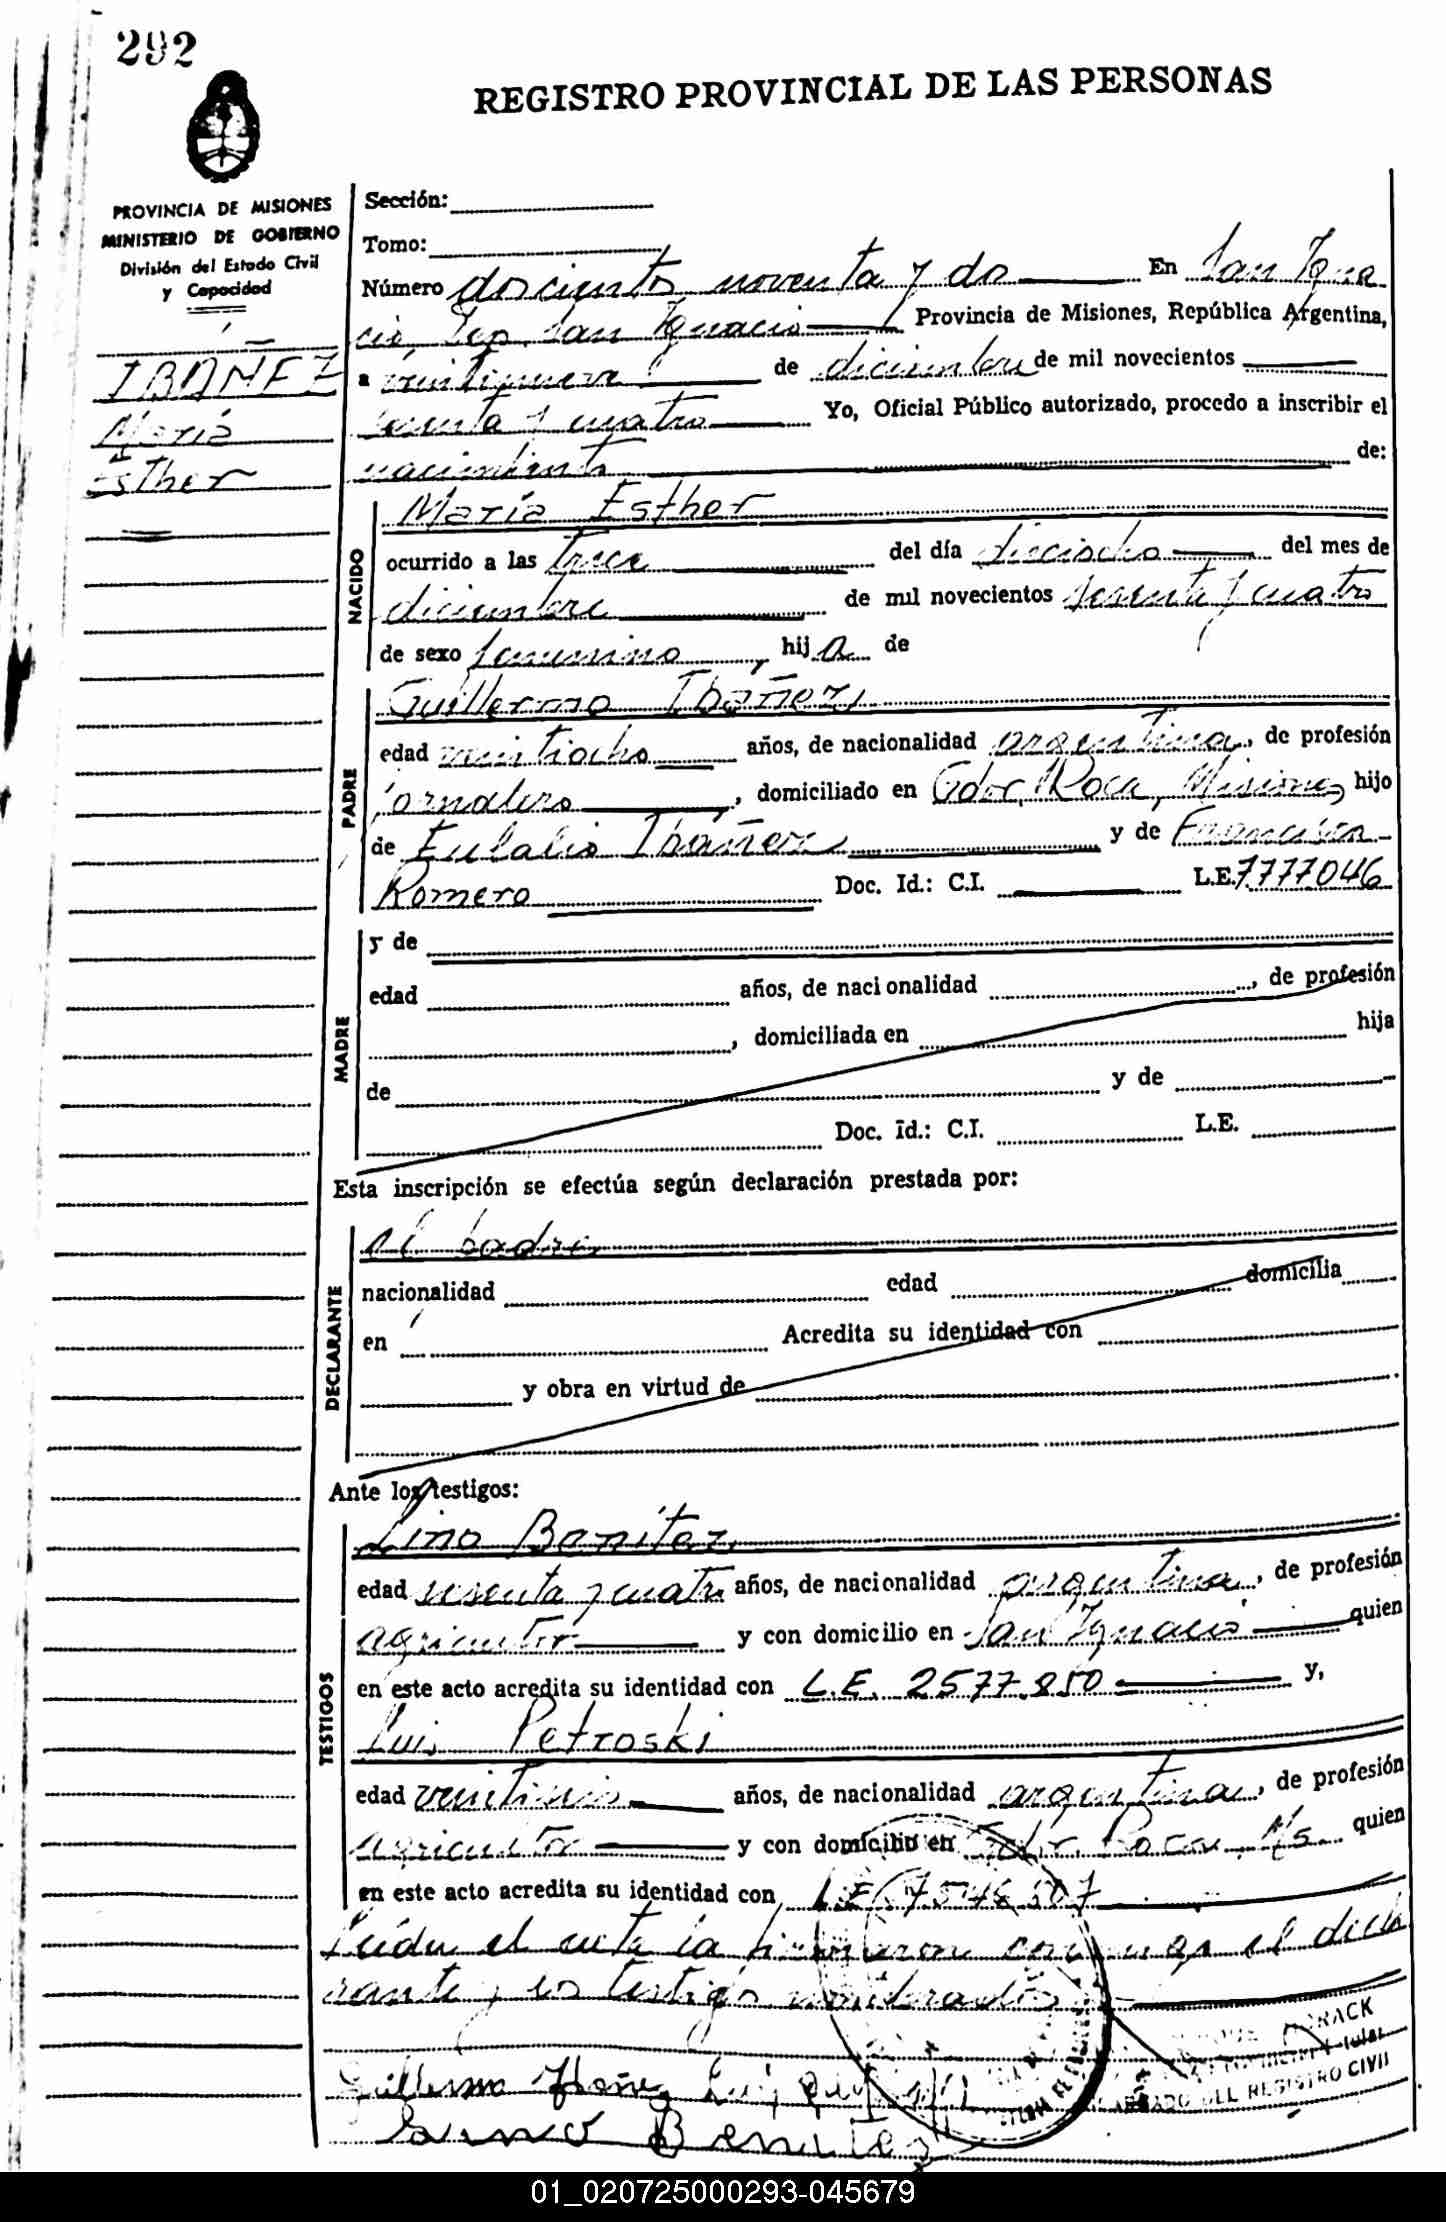 292
REGISTRO PROVINCIAL DE LAS PERSONAS
PROVINCIA DE MISIONES
MINISTERIO DE GOBIERNO
División del Estado Civil
y Capacidad
IBAÑEZ
María
Esther
Sección:
Tomo:
Número doscientos noventa y dos En San Igna
cio Dep. San Ignacio Provincia de Misiones, República Argentina,
a veintinueve de diciembre de mil novecientos
sesenta y cuatro Yo, Oficial Público autorizado, procedo a inscribir el
nacimiento de:
NACIDO
María Esther
ocurrido a las trece del día dieciocho del mes de
diciembre de mil novecientos sesenta y cuatro
de sexo femenino, hija de
PADRE
Guillermo Ibañez
edad veintiocho años, de nacionalidad argentina, de profesión
jornalero, domiciliado en Gdor. Roca, Misiones, hijo
de Eulalio Ibáñez y de Francisca
Romero Doc. Id.: C.I. L.E. 7777046
MADRE
y de
edad años, de nacionalidad , de profesión
, domiciliada en hija
de y de
Doc. id.: C.I. L.E.
Esta inscripción se efectúa según declaración prestada por:
DECLARANTE
el padre
nacionalidad edad domicilia
en Acredita su identidad con
y obra en virtud de
Ante los testigos:
TESTIGOS
Lino Benítez
edad sesenta y cuatro años, de nacionalidad argentina, de profesión
agricultor y con domicilio en San Ignacio quien
en este acto acredita su identidad con L.E. 2577.850 y,
Luis Petroski
edad veintiseis años, de nacionalidad argentina, de profesión
agricultor y con domicilio en Gdor. Roca, Ms. quien
en este acto acredita su identidad con L.E. 7.546.507
Leída el acta la firmaron conmigo el decla
rante y los testigos nombrados
Guillermo Ibañez Luis
Lino Benitez
DEL REGISTRO CIVIL
01_020725000293-045679